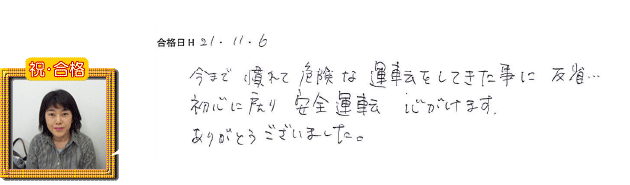 合格日 H 21.11.6
祝・合格
今まで 慣れて 危険な 運転をしてきた事に 反省…
初心に戻り 安全運転 心がけます.
ありがとうございました。